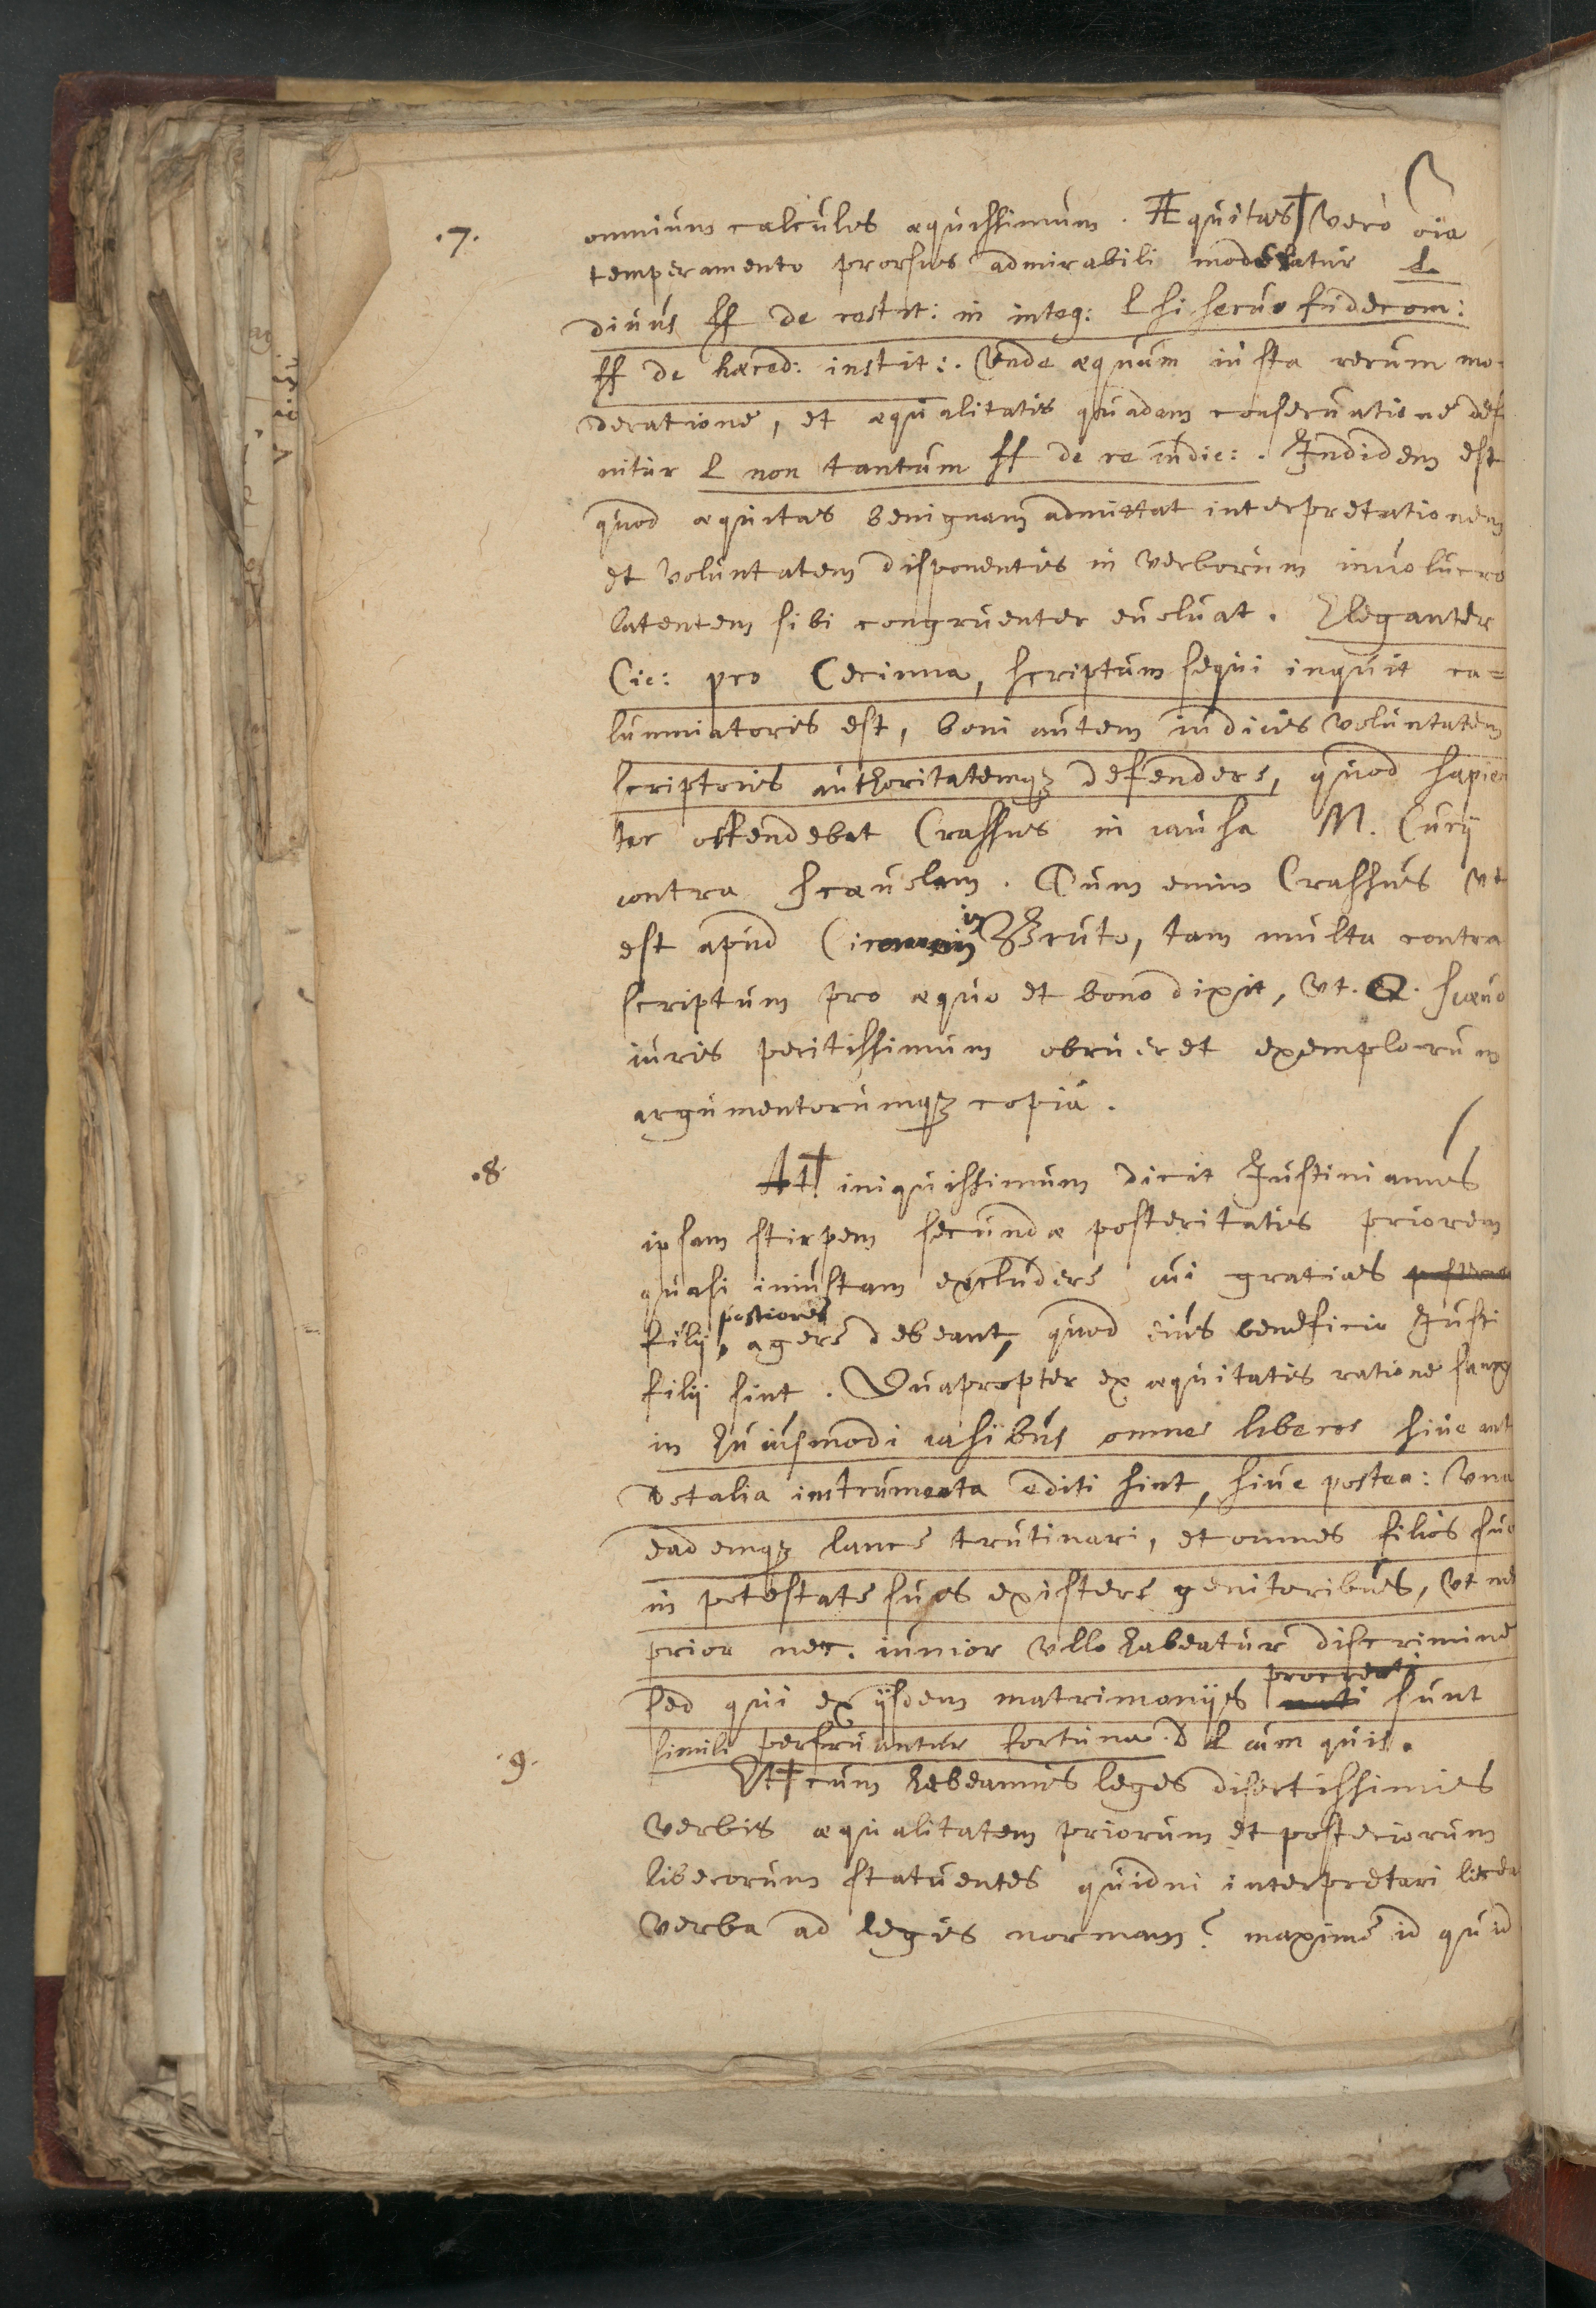 .7. omnium calculos æquissimum. Æquitas† vero oīa
temperamento prorsus admirabili moderatur L
diuus ff de restit: in integ: L si seruo fidecom:
ff de hæred: instit:. Unde æquum iusta rerum mo-
deratione, et æqualitatis quadam conseruatione defi
nitur L non tantum ff de re iudic:. Indidem est
quod æquitas benignam admittat interpretationem
et voluntatem disponentis in verborum inuolucro
latentem sibi congruenter euoluat. Eleganter
Cic: pro Cecinna, scriptum sequi inquit ca=
lumniatoris est, boni autem iudicis voluntatem
scriptoris authoritatemqꝫ defendere, quod sapien
ter ostendebat Crassus in causa M. Curij
contra Scæuolam. Cum enim Crassus vt
est apud Ciceronem in Bruto, tam multa contra
scriptum pro æquo et bono dixit, vt. Q. Scæuo
iuris peritissimum obrueret exemplorum
argumentorumqꝫ copia.
.8. At† iniquissimum dicit Justinianus
ipsam stirpem secundæ posteritatis priorem
quasi iniustam excludere cui gratias
filij, postiores agere debeant, quod eius beneficio Justi
filij sint. Quapropter ex æquitatis ratione sanx
in huiusmodi casibus omnes liberos siue ant
dotalia instrumenta editi sint, siue postea: vna
eademqꝫ lance trutinari, et omnes filios suo
in potestate suos existere genitoribus, vt nec
prior nec. iunior vllo habeatur discrimine
sed qui ex ijsdem matrimonijs procreati nati sunt
simili perfruantur fortuna. d L cum quis.
.9. Et† cum habeamus leges disertissimis
verbis æqualitatem priorum et posteriorum
liberorum statuentes quidni interpretari licea
verba ad legis normam? maxime id quid